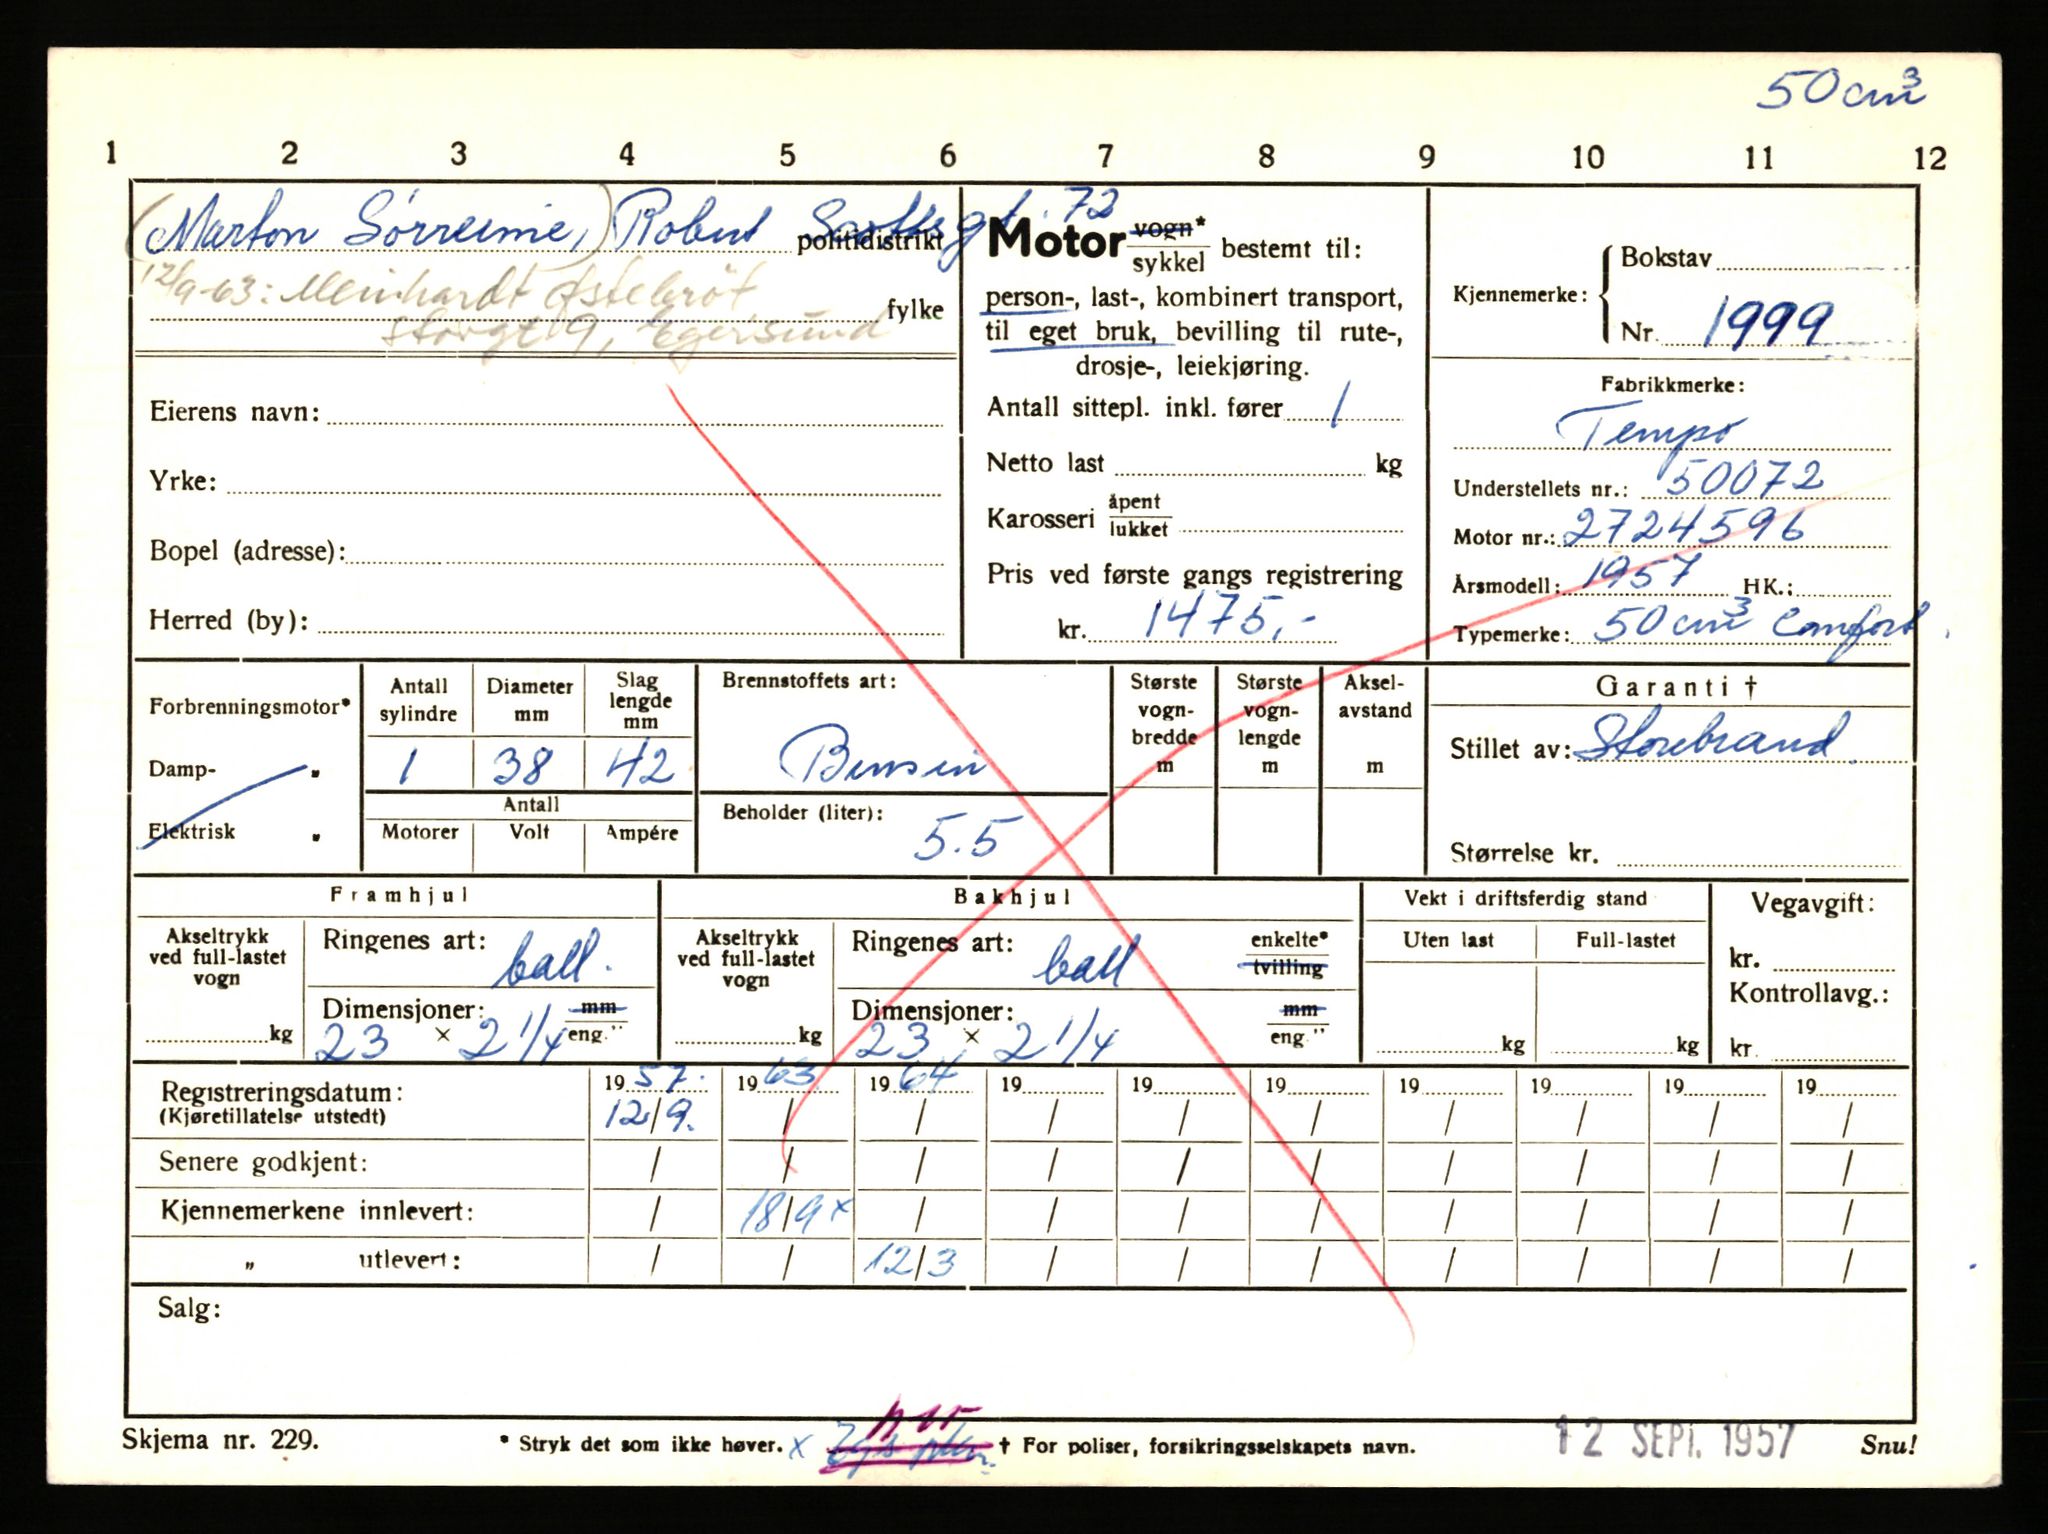 50 cm³
1 2 3 4 5 6 7 8 9 10 11 12
(Marton Sørreime,) Robert Scottsgt. 72
politidistrikt
12/9-63: Meinhardt Østebrøt
fylke
Storgt 9, Egersund
Eierens navn:
Yrke:
Bopel (adresse):
Herred (by):
Motor vogn* / sykkel bestemt til:
person-, last-, kombinert transport,
til eget bruk, bevilling til rute-,
drosje-, leiekjøring.
Antall sittepl. inkl. fører 1
Netto last kg
Karosseri åpent / lukket
Pris ved første gangs registrering
kr. 1475,-
Kjennemerke: { Bokstav
Nr. 1999
Fabrikkmerke:
Tempo
Understellets nr.: 50072
Motor nr.: 2724596
Årsmodell: 1957 HK.:
Typemerke: 50 cm³ Comfort.
Forbrenningsmotor*
Damp- "
Elektrisk "
Antall sylindre Diameter mm Slag lengde mm
1 38 42
Antall
Motorer Volt Ampére
Brennstoffets art:
Bensin
Beholder (liter):
5.5
Største vogn-bredde m
Største vogn-lengde m
Aksel-avstand m
Garanti †
Stillet av: Storebrand.
Størrelse kr.
Framhjul
Akseltrykk
ved full-lastet
vogn
kg
Ringenes art: ball.
Dimensjoner: mm / eng."
23 × 2 1/4
Bakhjul
Akseltrykk
ved full-lastet
vogn
kg
Ringenes art: ball enkelte* / tvilling
Dimensjoner: mm / eng."
23 × 2 1/4
Vekt i driftsferdig stand
Uten last Full-lastet
kg kg
Vegavgift:
kr.
Kontrollavg.:
kr.
Registreringsdatum: 19 57. 19 63 19 64 19 19 19 19 19 19 19
(Kjøretillatelse utstedt) 12/9. / / / / / / / / /
Senere godkjent: / / / / / / / / / /
Kjennemerkene innlevert: / 18/9 x / / / / / / / /
" utlevert: / / 12/3 / / / / / / /
Salg:
Skjema nr. 229.
* Stryk det som ikke høver. x
† For poliser, forsikringsselskapets navn.
12 SEPT. 1957
Snu!